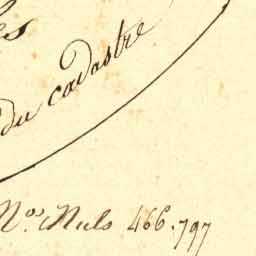 es
du cadastre
Nos. Nuls 466.797